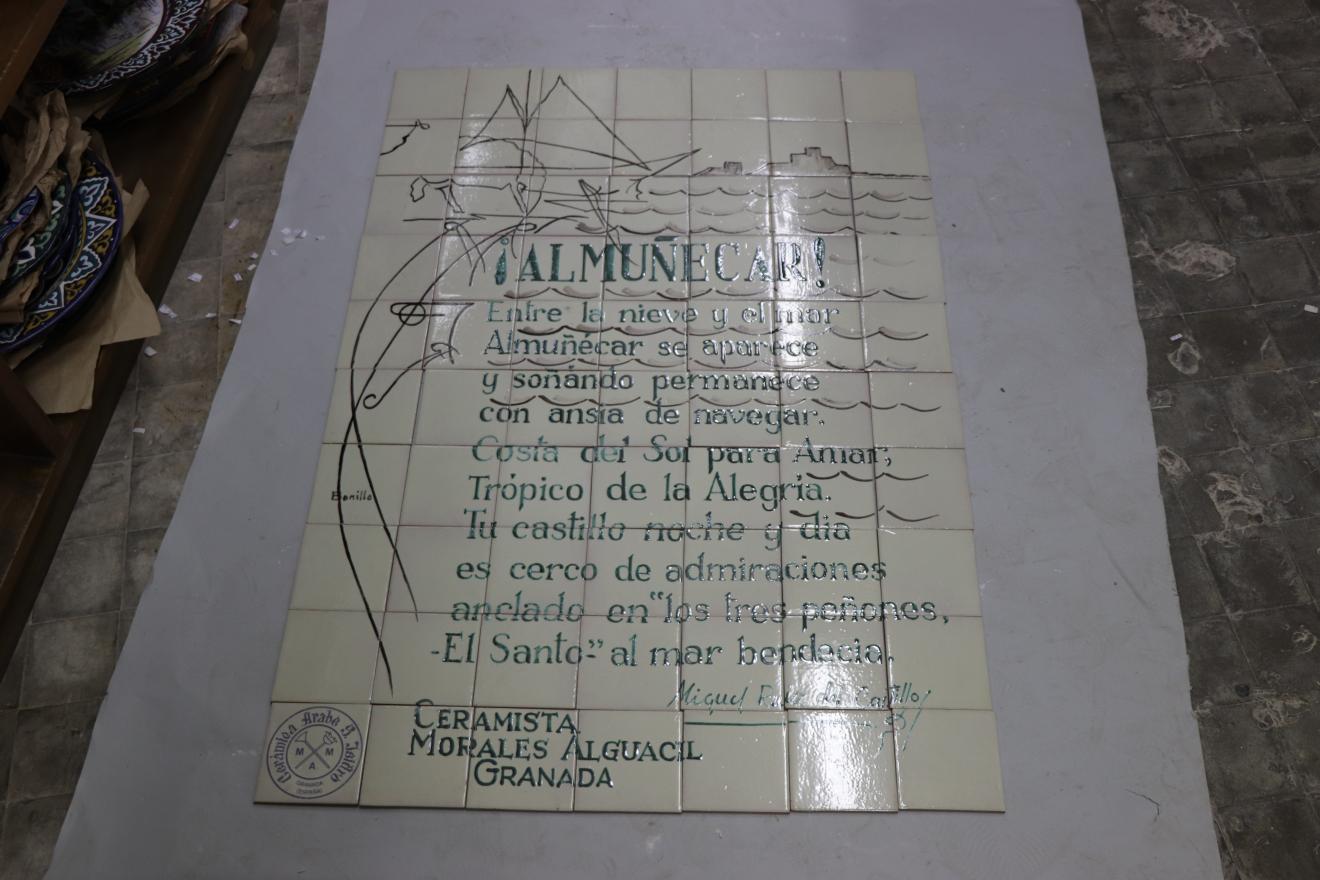 ¡ALMUÑECAR!
Entre la nieve y el mar
Almuñécar se aparece
y soñándo permanece
con ansia de navegar.
Costa del Sol para Amar,
Trópico de la Alegria.
Bonillo
Tu castillo noche y dia
es cerco de admiraciones
anclado en "los tres peñones,
-El Santo-" al mar bendecia.
Miguel Ruiz del Castillo
CERAMISTA
MORALES ALGUACIL
GRANADA
Cerámica Arabe S. Isidro
M M
A
GRANADA
(ESPAÑA)